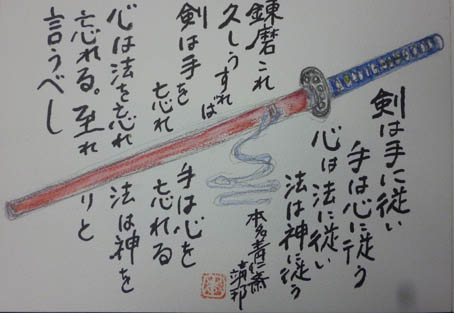 剣は手に従い
手は心に従う
心は法に従い
法は神に従う
本多青仁斎
靖邦
錬磨これ
久しうすれ
ば
剣は手を
忘れ
手は心を
忘れる
心は法を忘れ
法は神を
忘れる。至れ
りと
言うべし